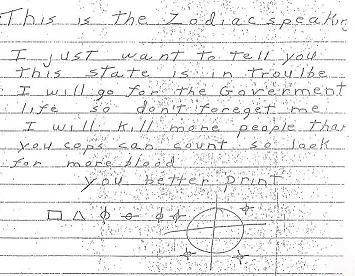 This is the Zodiac speaking
I just want to tell you
this state is in troulbe
I will go for the Goverment
life so don't foreget me
I will kill more people than
you cops can count so look
for more blood
you better print